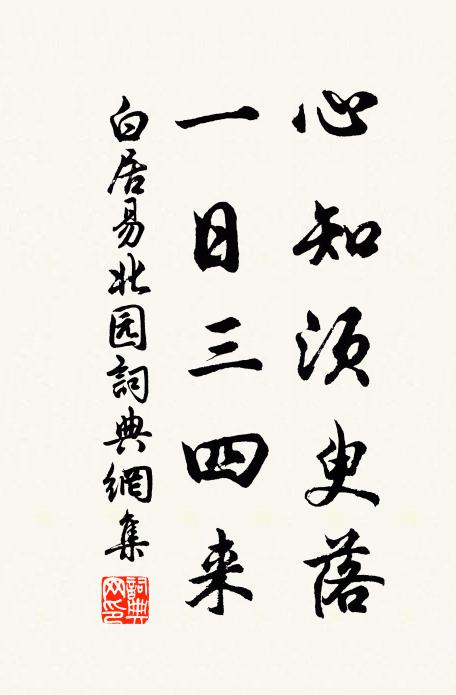 心知须臾落
一日三四来
白居易北园詞典網集
詞典网印